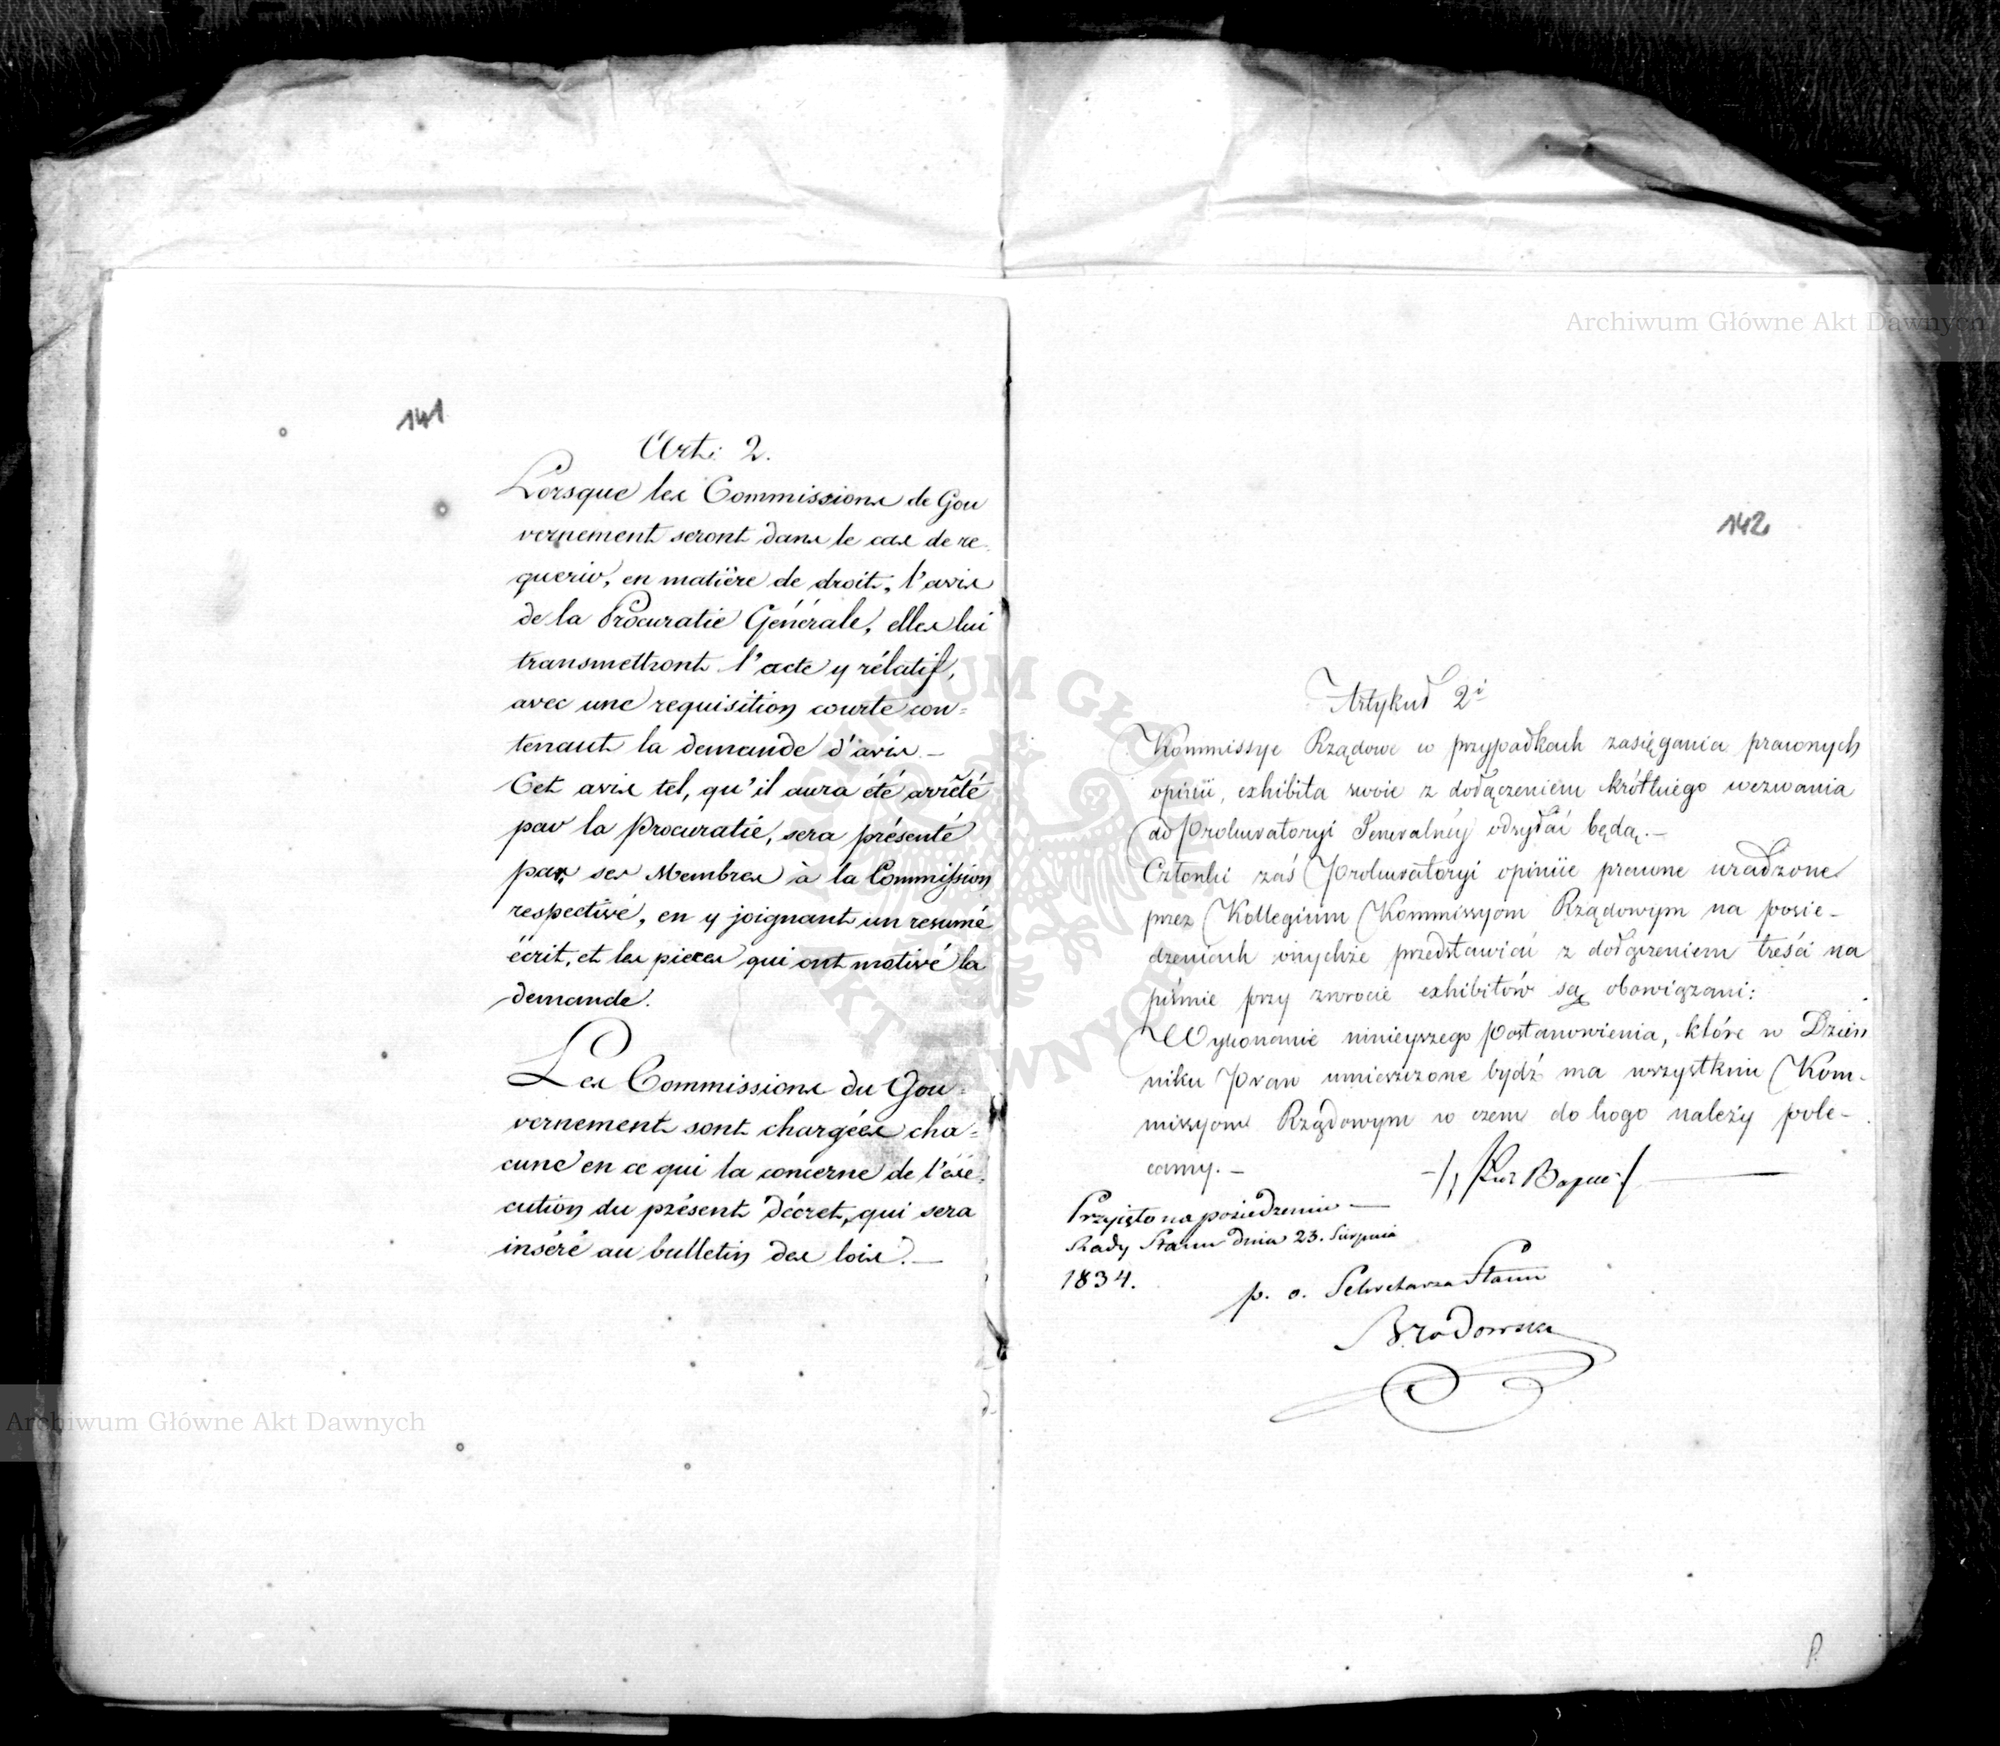 141
Art: 2.
Lorsque les Commissions de Gou
vernement seront dans le cas de re-
querir, en matière de droit, l'avis
de la Procuratie Générale, elles lui
transmettront l'acte y rélatif,
avec une requisition courte con=
tenant la demande d'avis.—
Cet avis tel, qu'il aura été arrêté
par la Procuratie, sera présenté
par ses Membres à la Commission
respective, en y joignant un resumé
écrit, et les pieces qui ont motivé la
demande.
Les Commissions du Gou=
vernement sont chargées cha=
cune en ce qui la concerne de l'éxe=
cution du présent décret, qui sera
inséré au bulletin des lois.—
142
Artykuł 2i
Kommissye Rządowe w przypadkach zasięgania prawnych
opinii, exhibita swoie z dołączeniem krótkiego wezwania
do Prokuratoryi Generalnéy odsyłać będą.—
Członki zaś Prokuratoryi opiniie prawne uradzone
przez Kollegium Kommissyom Rządowym na posie-
dzeniach onychże przedstawiać z dołączeniem treści na
piśmie przy zwrocie exhibitów są obowiązani:
Wykonanie ninieyszego Postanowienia, które w Dzien
niku Praw umieszczone bydź ma wszystkim Kom-
missyom Rządowym w czem do kogo należy pole-
camy.—
Przyięto na posiedzeniu —
Rady Stanu dnia 23. Sierpnia
1834.
p. o. Sekretarza Stanu
Brodowski
P.
Archiwum Główne Akt Dawnych
Archiwum Główne Akt Dawnych
ARCHIWUM GŁÓWNE AKT DAWNYCH